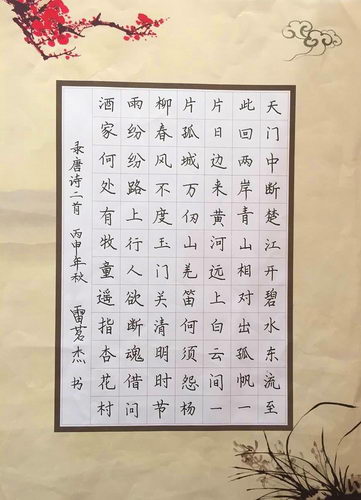 天门中断楚江开碧水东流至
此回两岸青山相对出孤帆一
片日边来黄河远上白云间一
片孤城万仞山羌笛何须怨杨
柳春风不度玉门关清明时节
雨纷纷路上行人欲断魂借问
酒家何处有牧童遥指杏花村
录唐诗二首 丙申年秋 雷茗杰 书